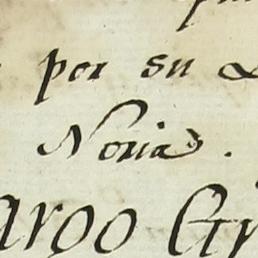 por su
Noria.
ardo Gr